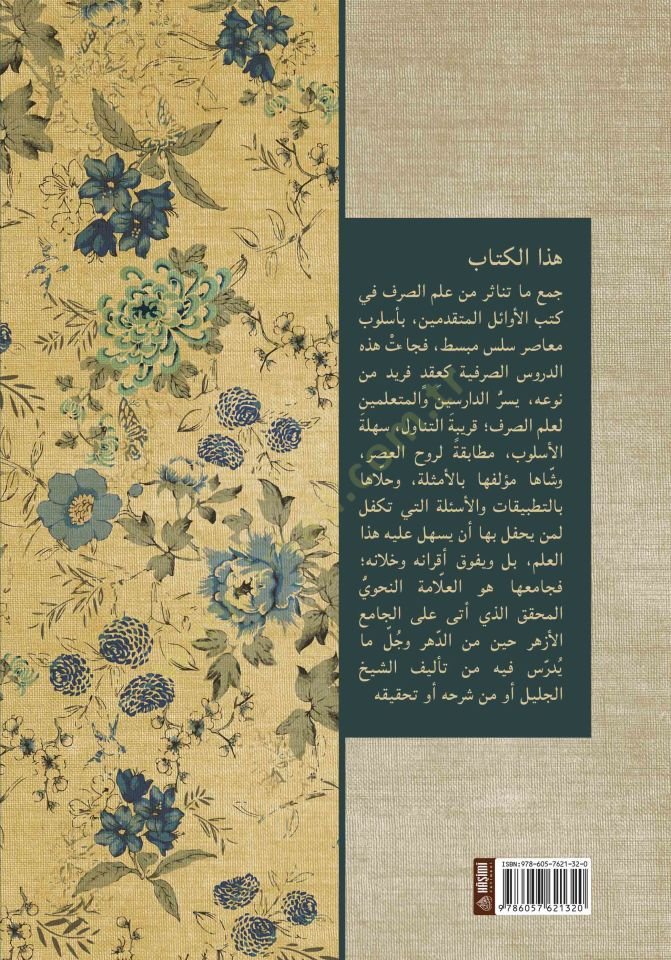 هذا الكتاب
جمع ما تناثر من علم الصرف في
كتب الأوائل المتقدمين، بأسلوب
معاصر سلس مبسط، فجاءتْ هذه
الدروس الصرفية كعقد فريد من
نوعه، يسرُّ الدارسين والمتعلمين
لعلم الصرف؛ قريبةَ التناول، سهلة
الأسلوب، مطابقةً لروح العصر،
وشّاها مؤلفها بالأمثلة، وحلاها
بالتطبيقات والأسئلة التي تكفل
لمن يحفل بها أن يسهل عليه هذا
العلم، بل ويفوق أقرانه وخلانه؛
فجامعها هو العلّامة النحويُّ
المحقق الذي أتى على الجامع
الأزهر حين من الدّهر وجُلّ ما
يُدرّس فيه من تأليف الشيخ
الجليل أو من شرحه أو تحقيقه
ISBN:978-605-7621-32-0
HÂŞİMİ
9 786057 621320